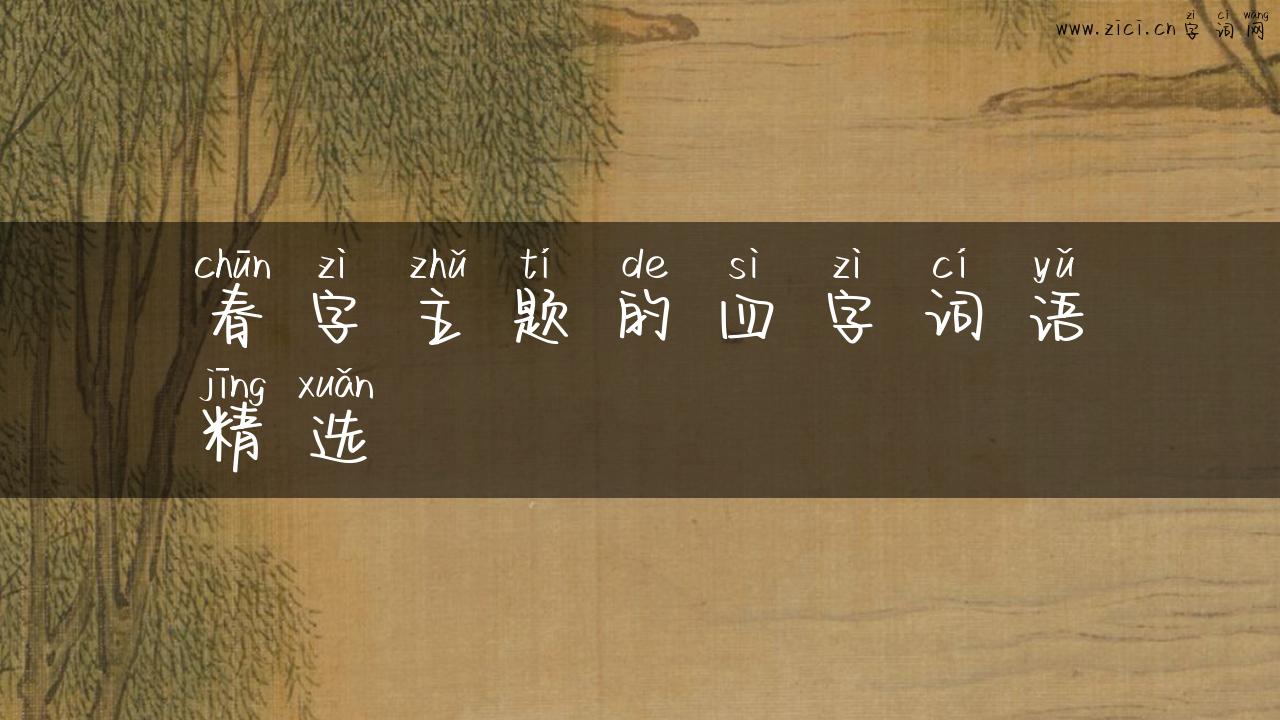 zì cí wǎng
www.zici.cn字词网
chūn zì zhǔ tí de sì zì cí yǔ
春字主题的四字词语
jīng xuǎn
精选